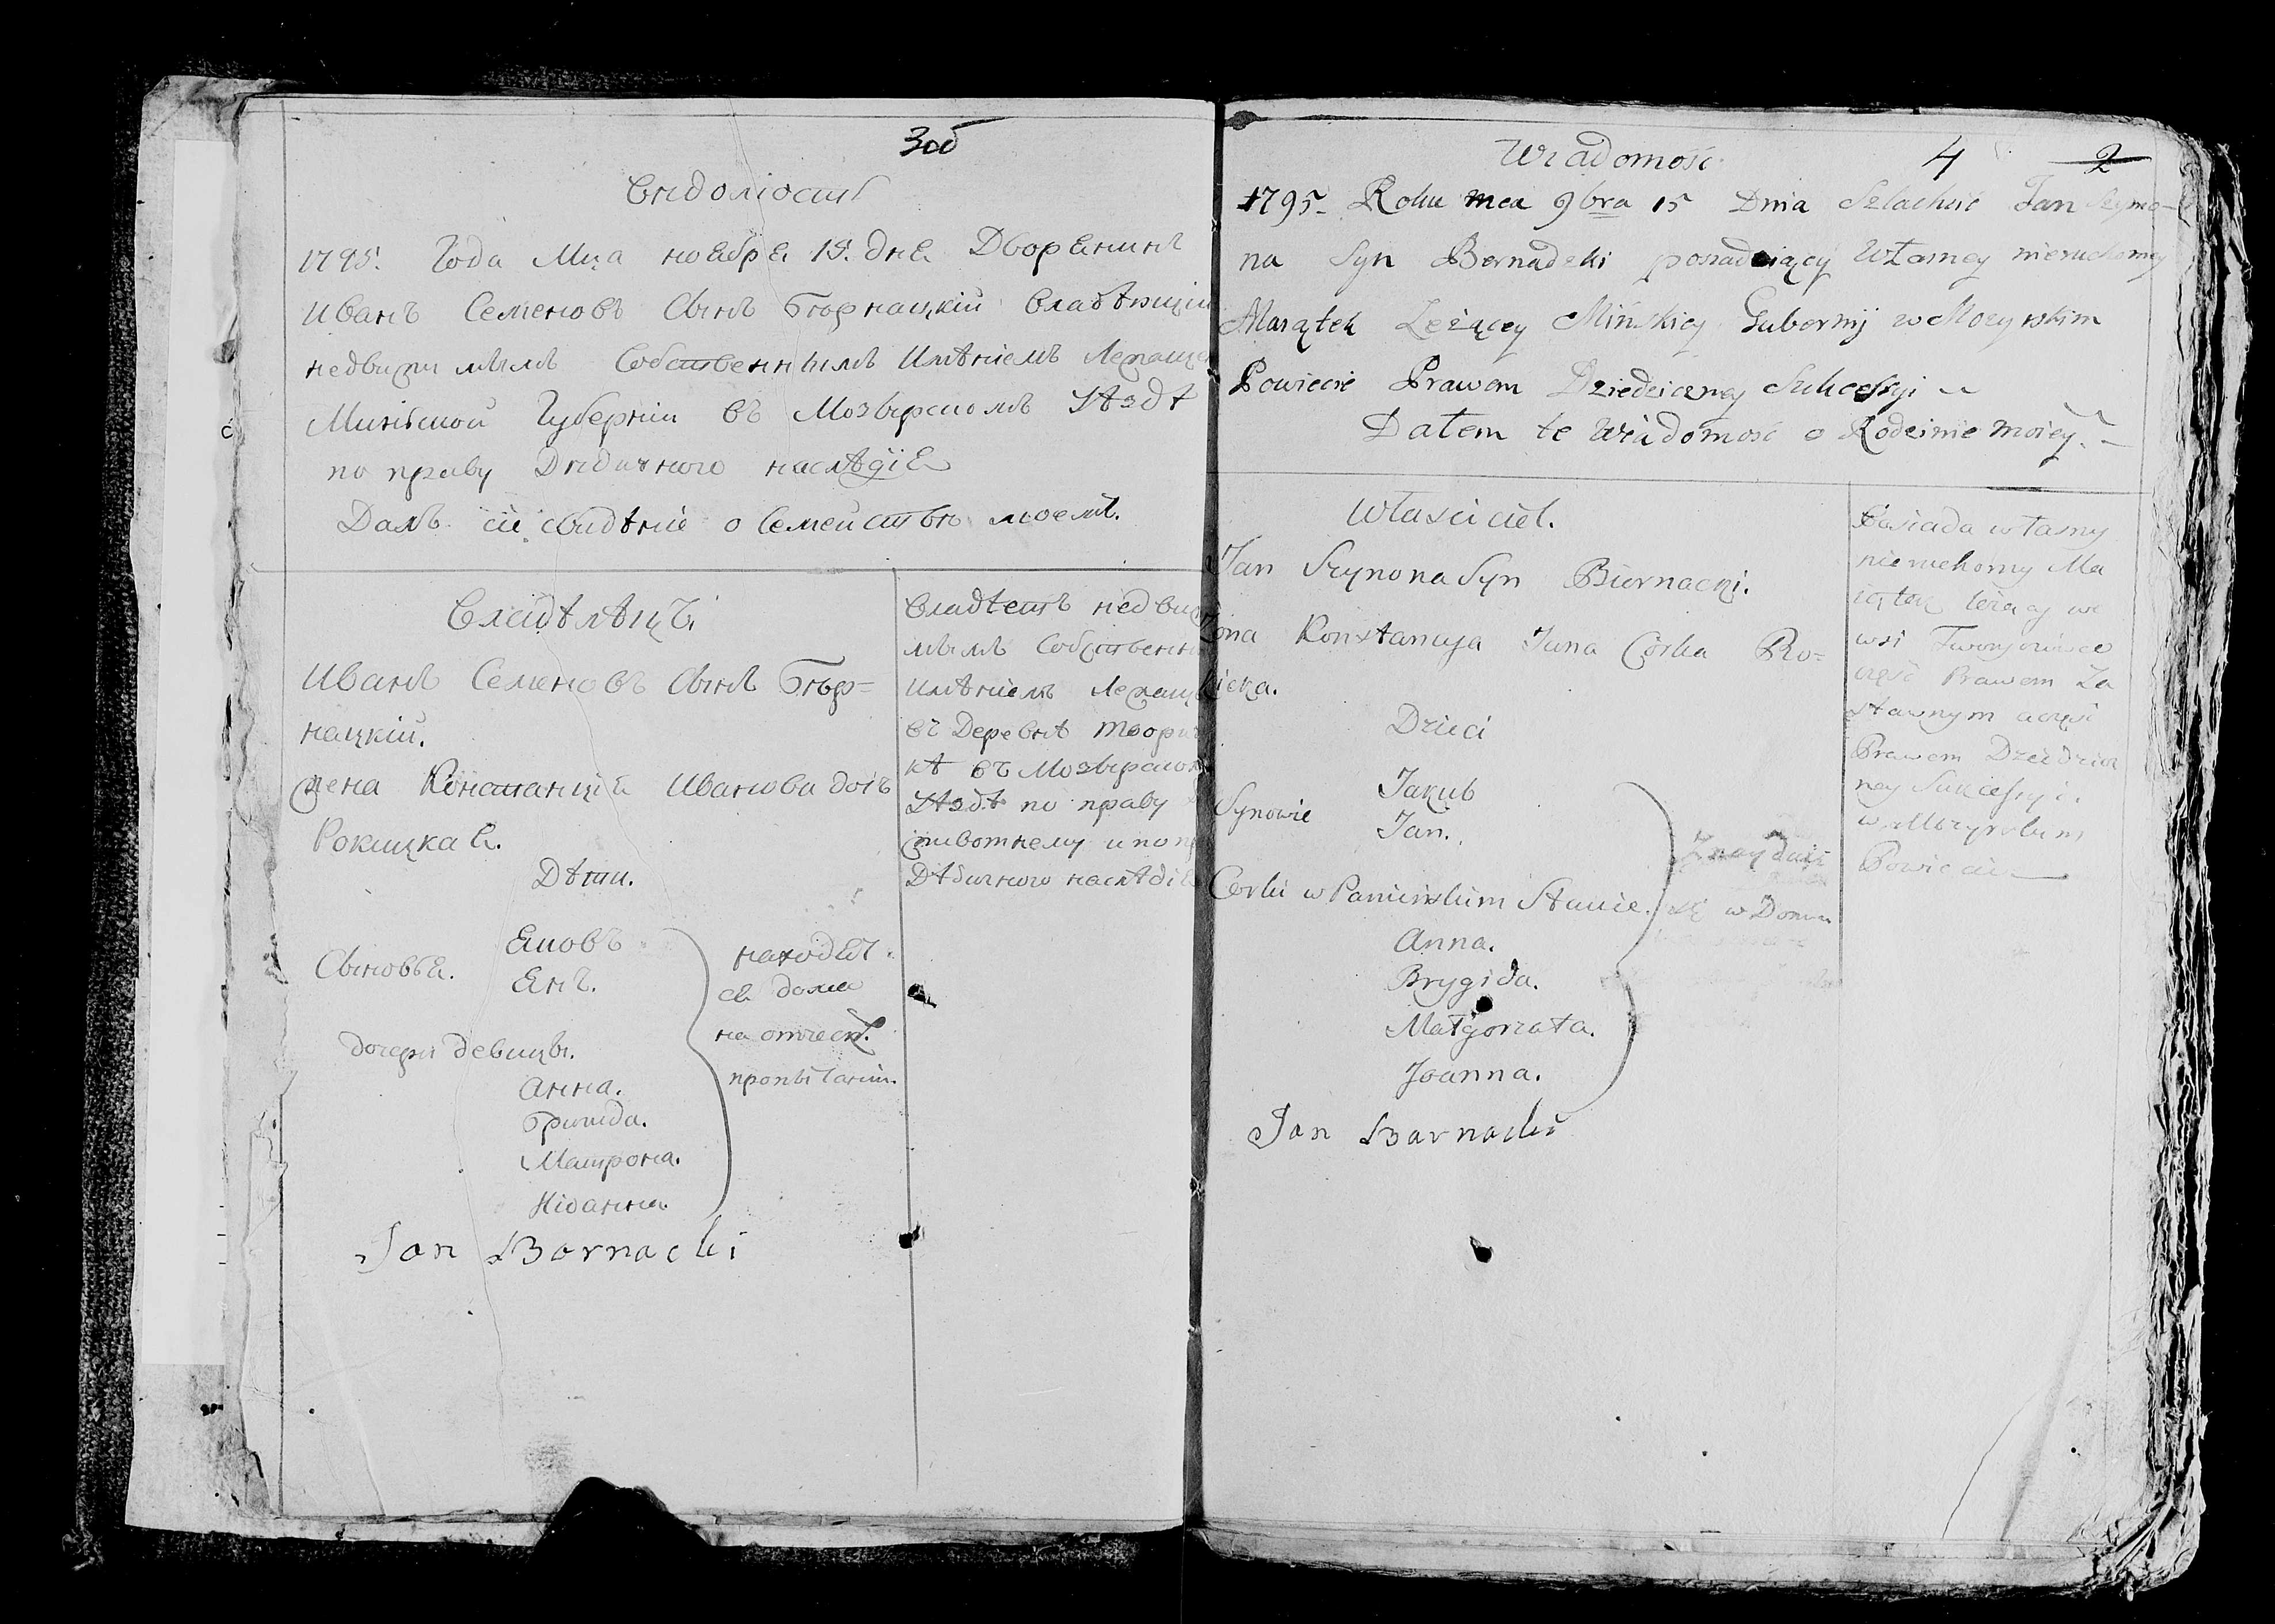 3об
Вѣдомость
1795. Года Мца ноября 15. дня Дворянинъ
Иванъ Семеновъ Сынъ Бѣрнацкій владѣющій
недвижимымъ Собственнымъ Имѣніемъ Лежаще
Минской Губерніи въ Мозырскомъ Уѣздѣ
по праву Дѣдичного наслѣдія
Далъ сіе свидѣніе о Семействѣ моемъ.
Владѣлецъ
Иванъ Семеновъ Сынъ Бѣр=
нацкій.
жена Констанція Иванова дочь
Рокицкая.
Дѣти.
Сыновья.
Яковъ
Янъ.
дочери девицы.
Анна.
Бригида.
Матрона.
Иоанна.
находят
ся доме
на отческ.
пропытаніи.
Владѣетъ недвиж
мымъ Собственны
Имѣніемъ Лежащ
въ Деревнѣ Твори
кѣ въ Мозырском
Уѣздѣ по праву
животнему и по п
Дѣдичного наслѣдія
Jan Barnacki
Wiadomość
4 2
1795 Roku mca 9bra 15 Dnia Szlachcic Jan Szymo-
na Syn Bernadzki posiadaiący Własney nieruchomey
Maiątek Leżącey Mińskiey Gubernij w Mozyrskim
Powiecie Prawem Dziedziczney Sukcessyi
Dałem te Wiadomość o Rodzinie moiey.
Właściciel.
Jan Szymona Syn Biernacki.
Żona Konstancyja Jana Córka Ro=
kicka.
Dzieci
Synowie
Jakub
Jan.
Corki w Panieńskim Stanie.
Anna.
Brygida.
Małgorzata.
Joanna.
Znayduią
się w Domu
Posiada własny
nieruchomy Ma
iątek leżący we
wsi Tworyczowce
część Prawem Za
stawnym a część
Prawem Dziedzicz
ney Sukcessyi.
w Mozyrskim
Powiecie
Jan Barnacki